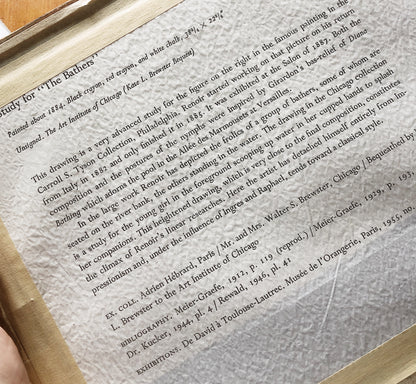 Study for "The Bathers"
Painted about 1884. Black crayon, red crayon, and white chalk,
Unsigned. The Art Institute of Chicago (Kate L. Brewster Bequest)
This drawing is a very advanced study for the figure on the right in the famous painting in the
Carroll S. Tyson Collection, Philadelphia. Renoir started working on that picture on his return
from Italy in 1882 and only finished it in 1885. It was exhibited at the Salon of 1887. Both the
composition and the pictures of the nymphs were inspired by Girardon's bas-relief of Diana
Bathing which adorns the pool in the Allée des Marmousets at Versailles.
In the large work Renoir has depicted the frolics of a group of bathers, some of whom are
seated on the river bank, the others standing in the water. The drawing in the Chicago collection
is a study for the young girl in the foreground scooping up water in her cupped hands to splash
her companions. This heightened drawing, which is very close to the final composition, constitutes
the climax of Renoir's linear researches. Here the artist has detached himself entirely from Im-
pressionism and, under the influence of Ingres and Raphael, tends toward a classical style.
EX. COLL. Adrien Hébrard, Paris / Mr. and Mrs. Walter S. Brewster, Chicago / Bequeathed by
L. Brewster to the Art Institute of Chicago
BIBLIOGRAPHY. Meier-Graefe, 1912, p. 119 (reprod.) / Meier-Graefe, 1929, p. 193,
Dr. Kucker, 1944, pl. 4 / Rewald, 1946, pl. 41
EXHIBITIONS. De David à Toulouse-Lautrec. Musée de l'Orangerie, Paris, 1955, no.